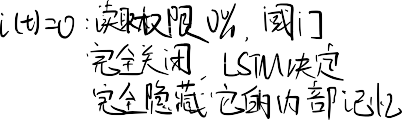 i(t)=0:读取权限0%,阀门
完全关闭,LSTM决定
完全隐藏它的内部记忆